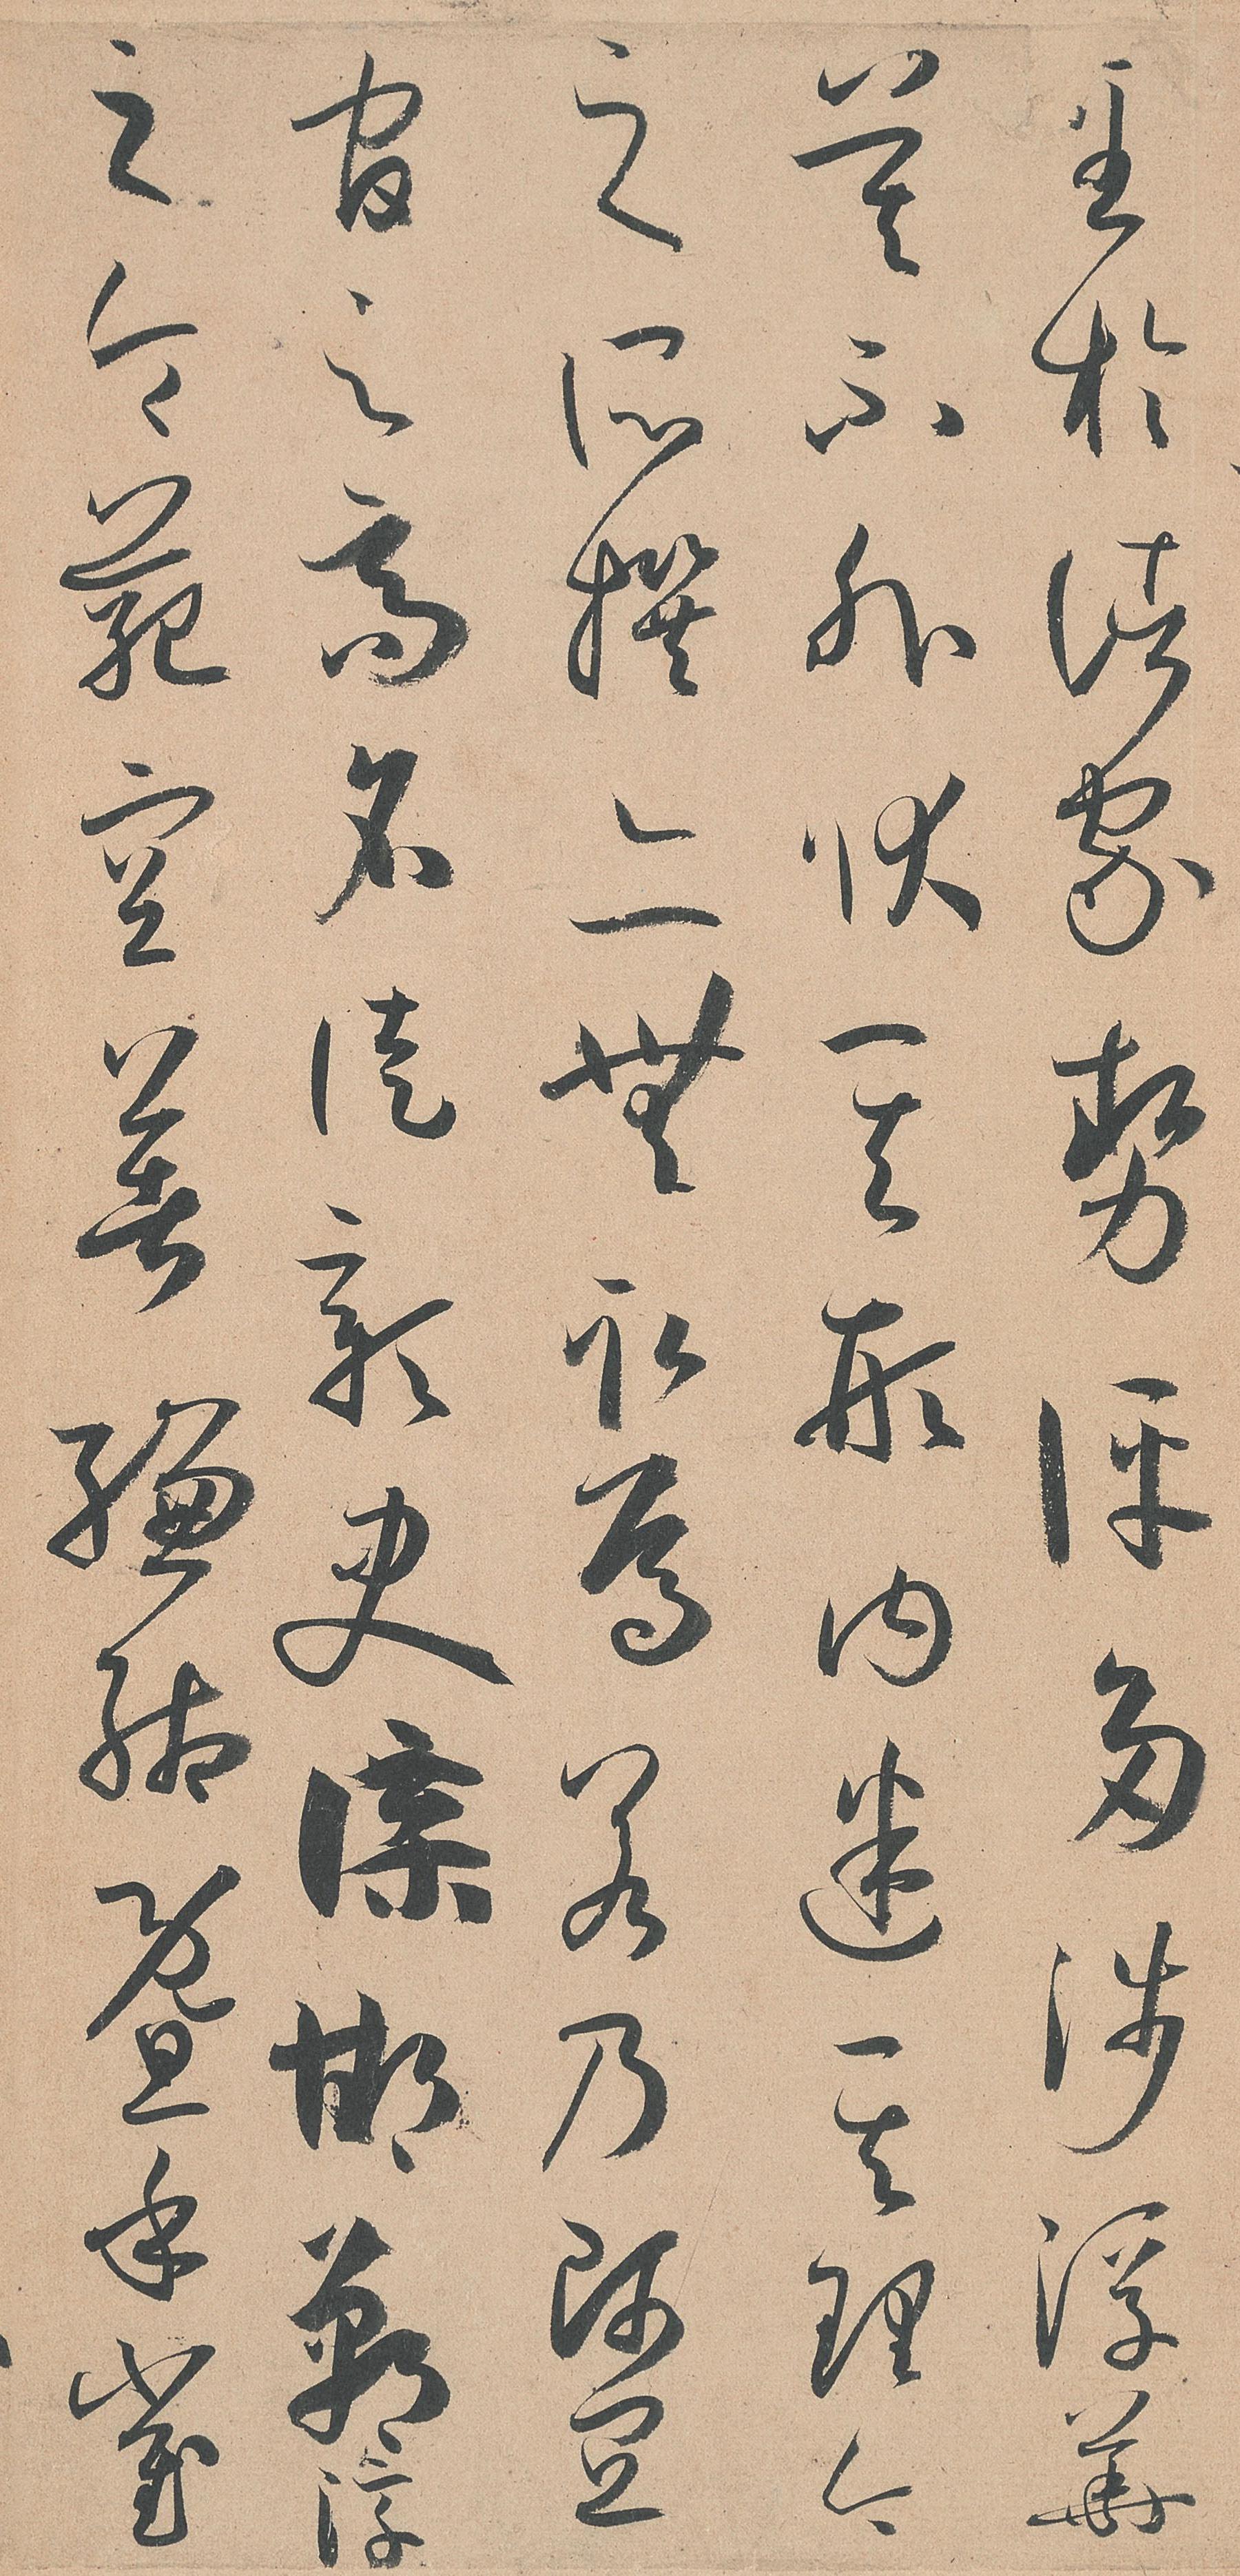 至於諸家勢評多涉浮華
莫不外狀其形內迷其理今
之所撰亦無取焉若乃師宜
官之高名徒彰史牒邯鄲淳
之令範空著縑緗暨乎崔